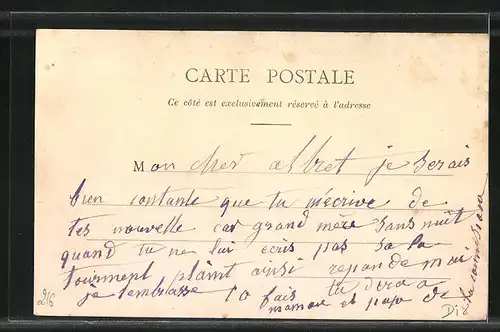 CARTE POSTALE
Ce côté est exclusivement réservé à l'adresse
Mon cher albret je serais
bien contante que tu mécrive de
tes nouvelle car grand mère sans nuit
quand tu ne lui ecris pas sa la
tourment plaint ainsi repan de moi
je tembrasse to fais tu dera a
maman et papa de